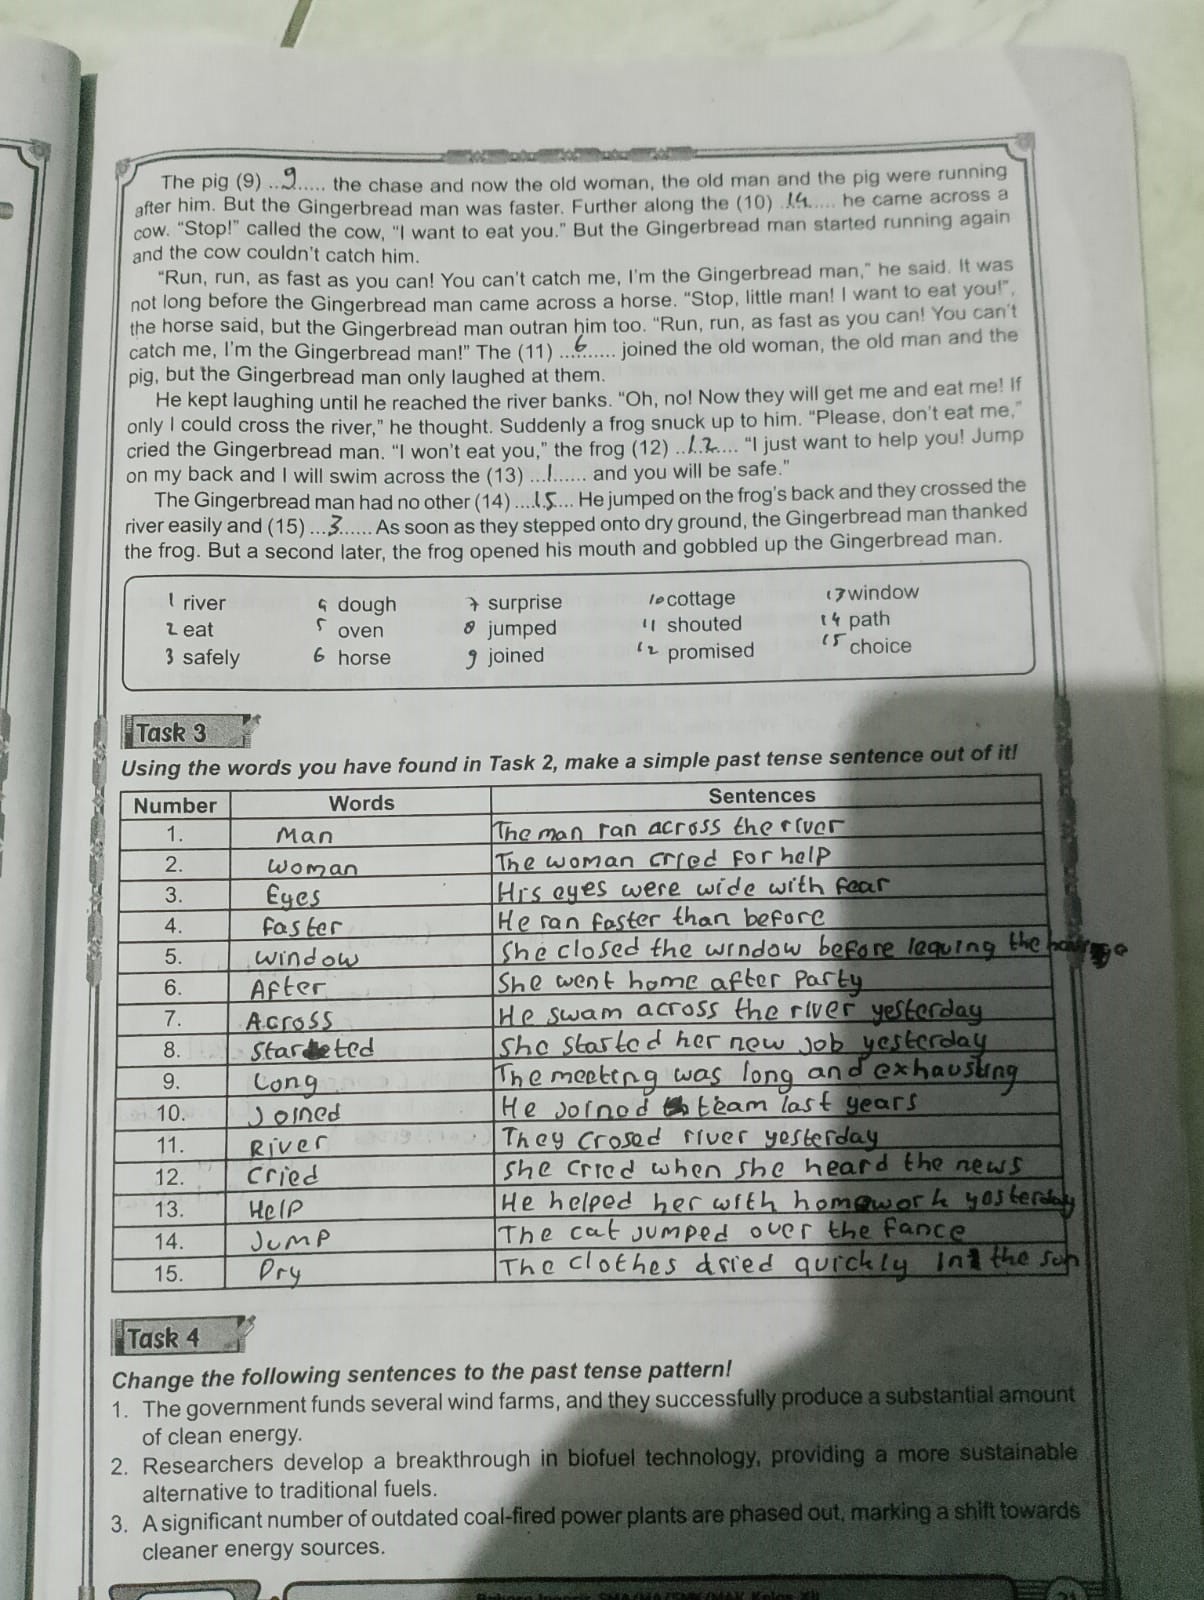 The pig (9) ..9...... the chase and now the old woman, the old man and the pig were running
after him. But the Gingerbread man was faster. Further along the (10) .14..... he came across a
cow. "Stop!" called the cow, "I want to eat you." But the Gingerbread man started running again
and the cow couldn't catch him.
"Run, run, as fast as you can! You can't catch me, I'm the Gingerbread man," he said. It was
not long before the Gingerbread man came across a horse. "Stop, little man! I want to eat you!",
the horse said, but the Gingerbread man outran him too. "Run, run, as fast as you can! You can't
catch me, I'm the Gingerbread man!" The (11) ...6...... joined the old woman, the old man and the
pig, but the Gingerbread man only laughed at them.
He kept laughing until he reached the river banks. "Oh, no! Now they will get me and eat me! If
only I could cross the river," he thought. Suddenly a frog snuck up to him. "Please, don't eat me,"
cried the Gingerbread man. "I won't eat you," the frog (12) ..12.... "I just want to help you! Jump
on my back and I will swim across the (13) ...1...... and you will be safe."
The Gingerbread man had no other (14) ....15.... He jumped on the frog's back and they crossed the
river easily and (15) ...3...... As soon as they stepped onto dry ground, the Gingerbread man thanked
the frog. But a second later, the frog opened his mouth and gobbled up the Gingerbread man.
1 river 4 dough 7 surprise 10 cottage 13 window
2 eat 5 oven 8 jumped 11 shouted 14 path
3 safely 6 horse 9 joined 12 promised 15 choice
Task 3
Using the words you have found in Task 2, make a simple past tense sentence out of it!
Number Words Sentences
1. Man The man ran across the river
2. Woman The woman cried for help
3. Eyes His eyes were wide with fear
4. faster He ran faster than before
5. window She closed the window before leaving the
6. After She went home after Party
7. Across He swam across the river yesterday
8. Started She started her new job yesterday
9. Long The meeting was long and exhausting
10. Joined He joined team last years
11. River They crosed river yesterday
12. Cried She cried when she heard the news
13. Help He helped her with homework yesterday
14. Jump The cat jumped over the fance
15. Dry The clothes dried quickly in the sun
Task 4
Change the following sentences to the past tense pattern!
1. The government funds several wind farms, and they successfully produce a substantial amount
of clean energy.
2. Researchers develop a breakthrough in biofuel technology, providing a more sustainable
alternative to traditional fuels.
3. A significant number of outdated coal-fired power plants are phased out, marking a shift towards
cleaner energy sources.